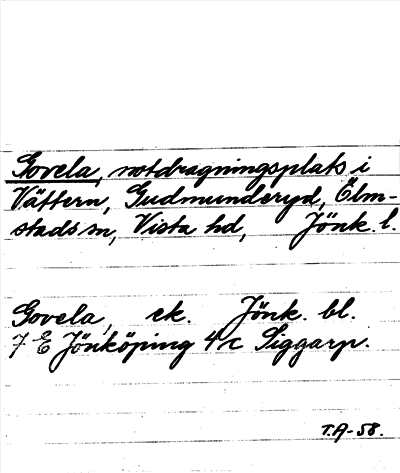 Govela, notdragningsplats i
Vättern, Gudmunderyd, Ölm-
stads sn, Vista hd, Jönk. l.
Govela, ek. Jönk. bl.
7 E Jönköping 4 c Siggarp.
T.A-58.